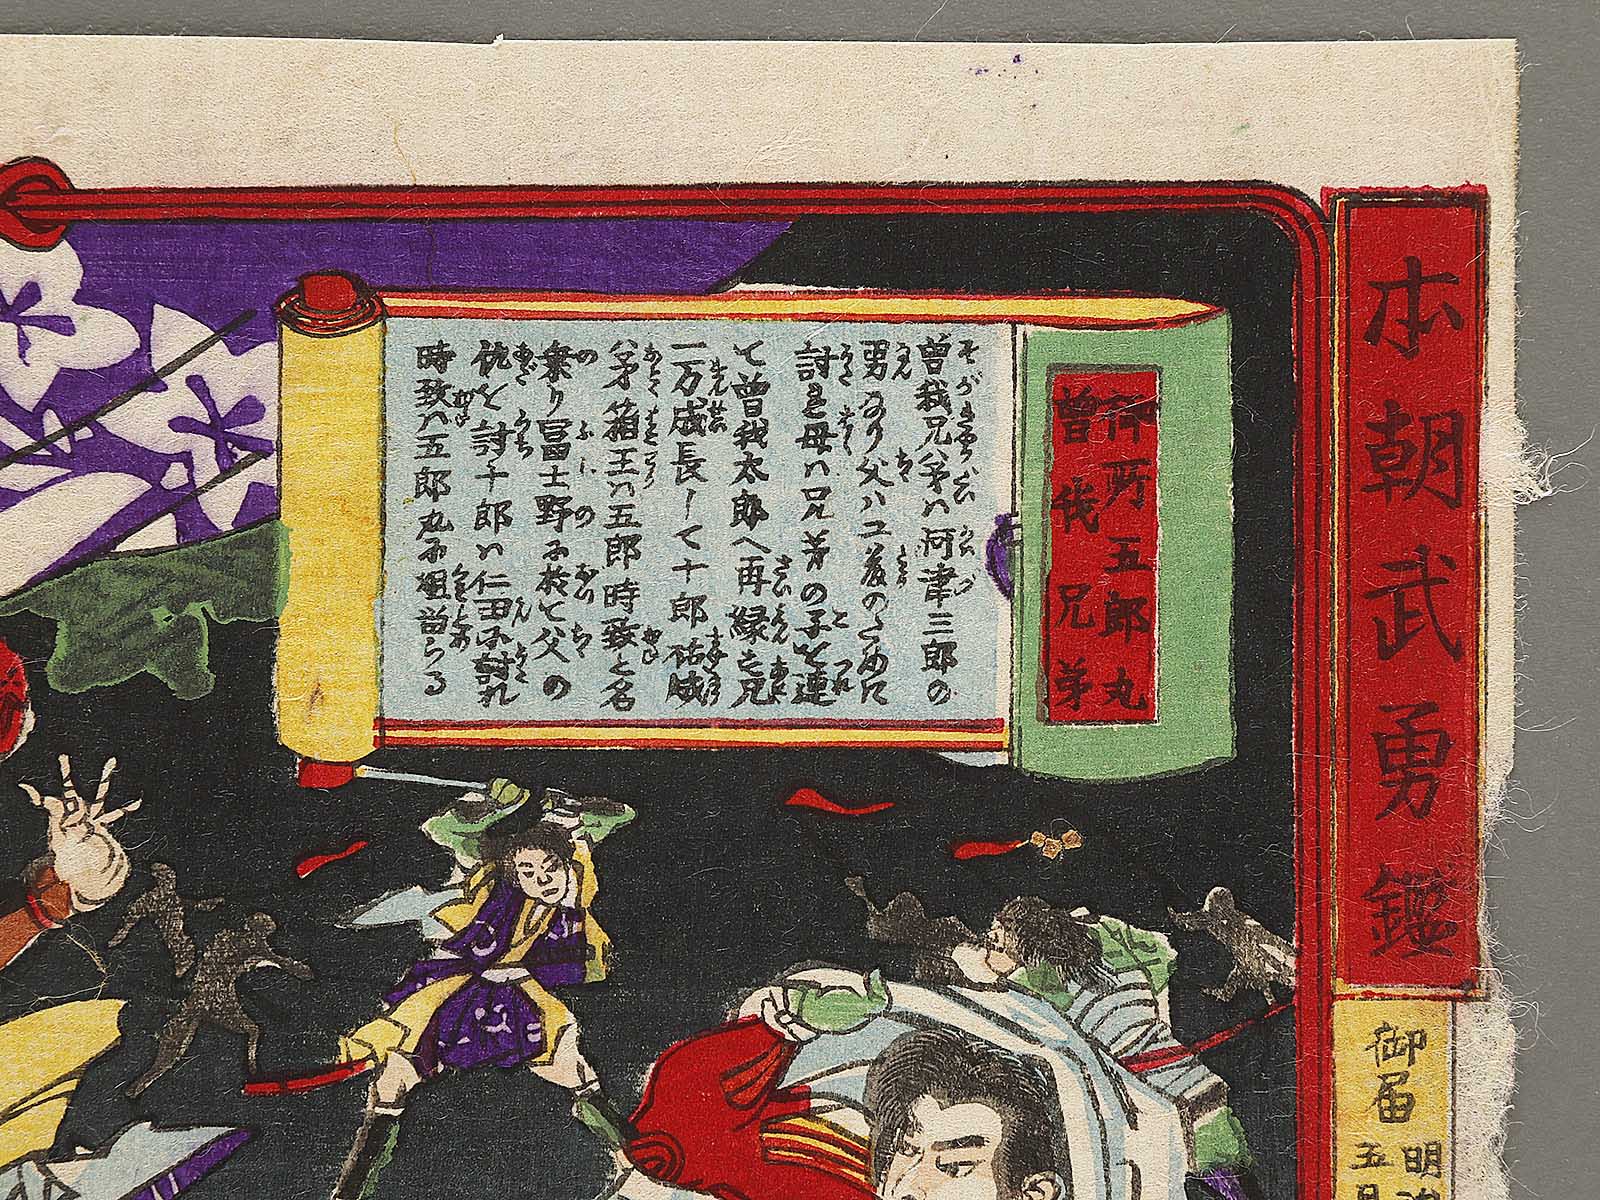 本朝武勇鑑
御届
明治
五月
御所五郎丸
曽我兄弟
曽我兄弟ハ河津三郎の
男なり父ハ工藤のために
討る母ハ兄弟の子を連
て曽我太郎へ再縁し兄
一万成長して十郎祐成
八弟箱王ハ五郎時致と名
乗り富士野に於て父の
仇を討十郎ハ仁田に討れ
時致ハ五郎丸に